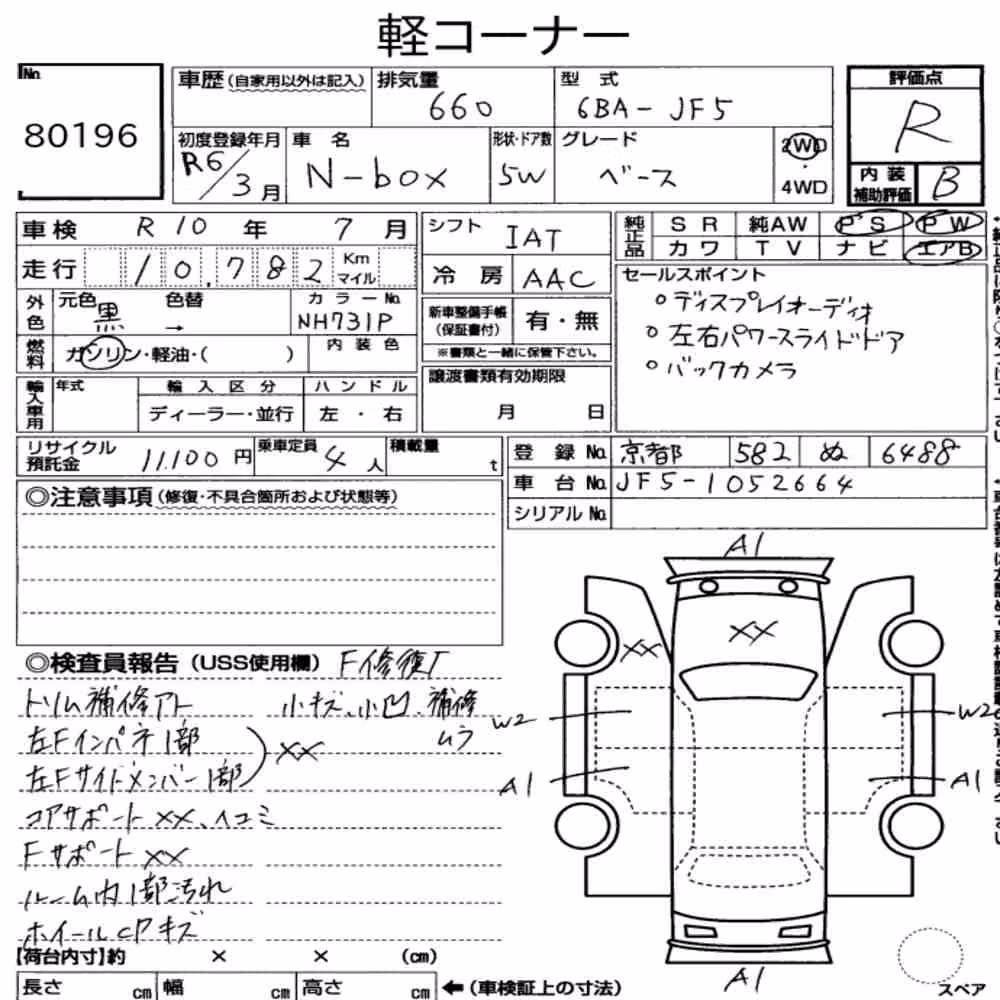 軽コーナー
No. 80196
車歴(自家用以外は記入) 排気量 660 型式 6BA-JF5 評価点 R
初度登録年月 R6/3月 車名 N-box 形状・ドア数 5W グレード ベース 2WD・4WD 内装補助評価 B
車検 R10年 7月 シフト IAT 純正品 SR 純AW PS PW
カワ TV ナビ エアB
走行 10,782 Km マイル 冷房 AAC セールスポイント
外色 元色 黒 色替 → カラーNo. NH731P 新車整備手帳(保証書付) 有・無
※書類と一緒に保管下さい。
○ディスプレイオーディオ
○左右パワースライドドア
○バックカメラ
燃料 ガソリン・軽油・( ) 内装色
譲渡書類有効期限 月 日
輸入車用 年式 輸入区分 ハンドル
ディーラー・並行 左・右
リサイクル預託金 11,100円 乗車定員 4人 積載量 t
登録No. 京都 582 ぬ 6488
車台No. JF5-1052664
シリアルNo.
◎注意事項(修復・不具合箇所および状態等)
◎検査員報告(USS使用欄) F修復歴
トリム補修アト 小キズ、小凹、補修ムラ
左Fインパネ1部
左Fサイドメンバー1部 XX
コアサポートXX、ヘコミ
FサポートXX
ルーム内1部汚れ
ホイールCPキズ
A1
XX XX
W2 W2
A1 A1
A1
スペア
【荷台内寸】約 × × (cm)
長さ cm 幅 cm 高さ cm ←(車検証上の寸法)